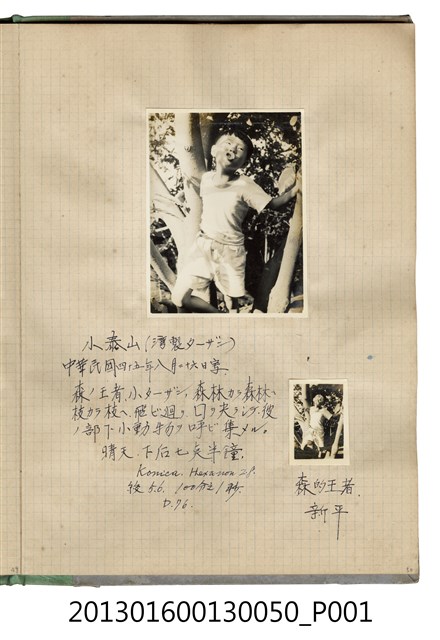 小泰山(湾製ターザン)
中華民國四十五年八月二十六日寫
森ノ王者、小ターザン、森林カラ森林ヘ
枝カラ枝ヘ飛ビ廻リ口ヲ尖ラシ、彼
ノ部下小動物ヲ呼ビ集メル。
晴天、下后七
Konica. Hexanon
後 5.6. 100分之1秒.
D.76.
森的王者
新平
201301600130050_P001